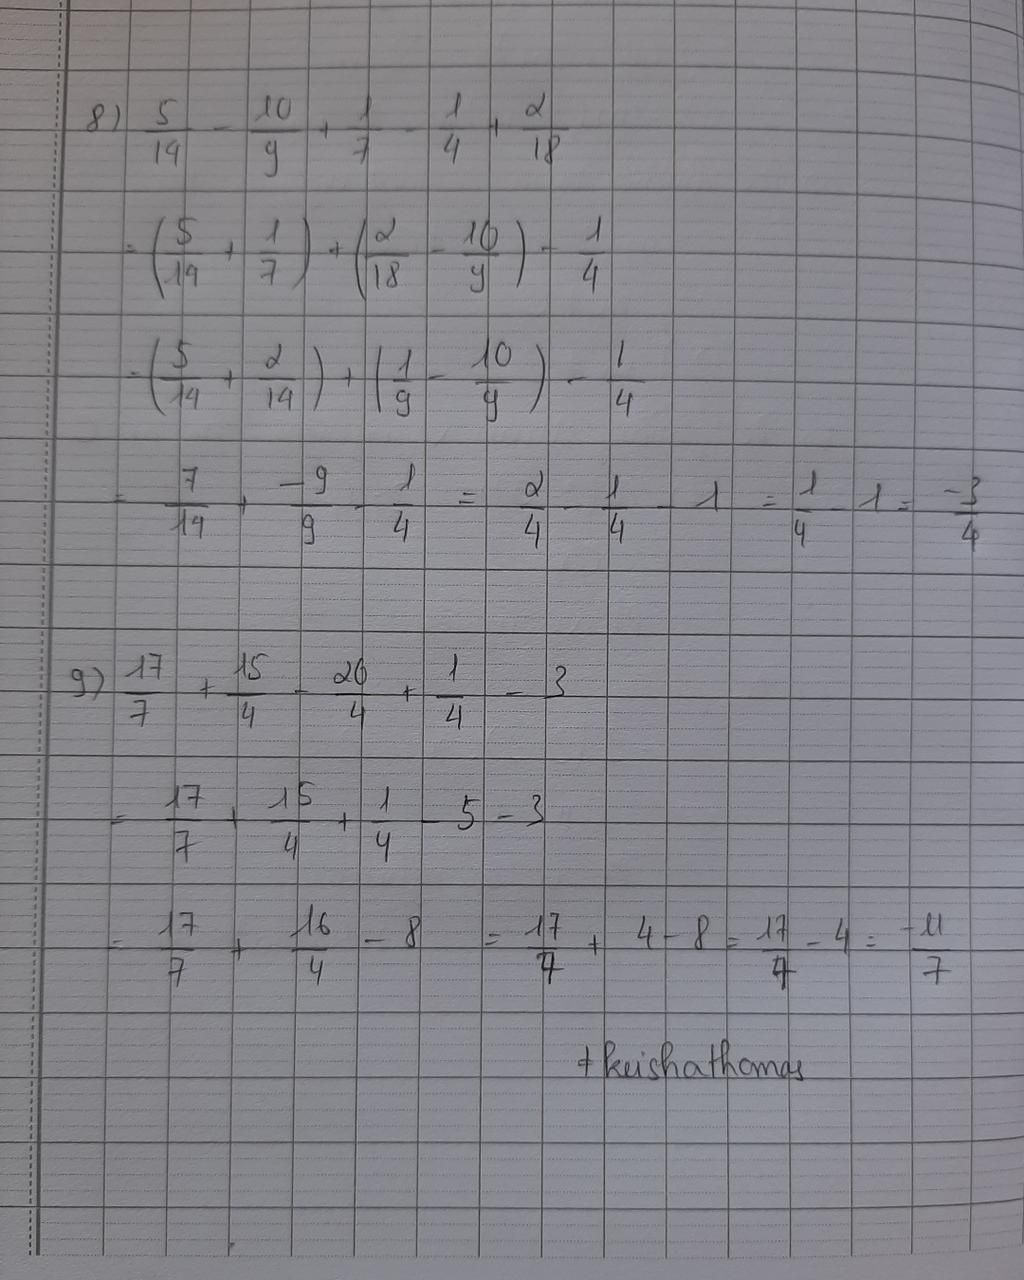 8) 5/14 - 10/9 + 1/7 - 1/4 + 2/18
= (5/14 + 1/7) + (2/18 - 10/9) - 1/4
= (5/14 + 2/14) + (1/9 - 10/9) - 1/4
= 7/14 + -9/9 - 1/4 = 2/4 - 1/4 - 1 = 1/4 - 1 = -3/4
9) 17/7 + 15/4 - 20/4 + 1/4 - 3
= 17/7 + 15/4 + 1/4 - 5 - 3
= 17/7 + 16/4 - 8 = 17/7 + 4 - 8 = 17/7 - 4 = -11/7
+keishathomas